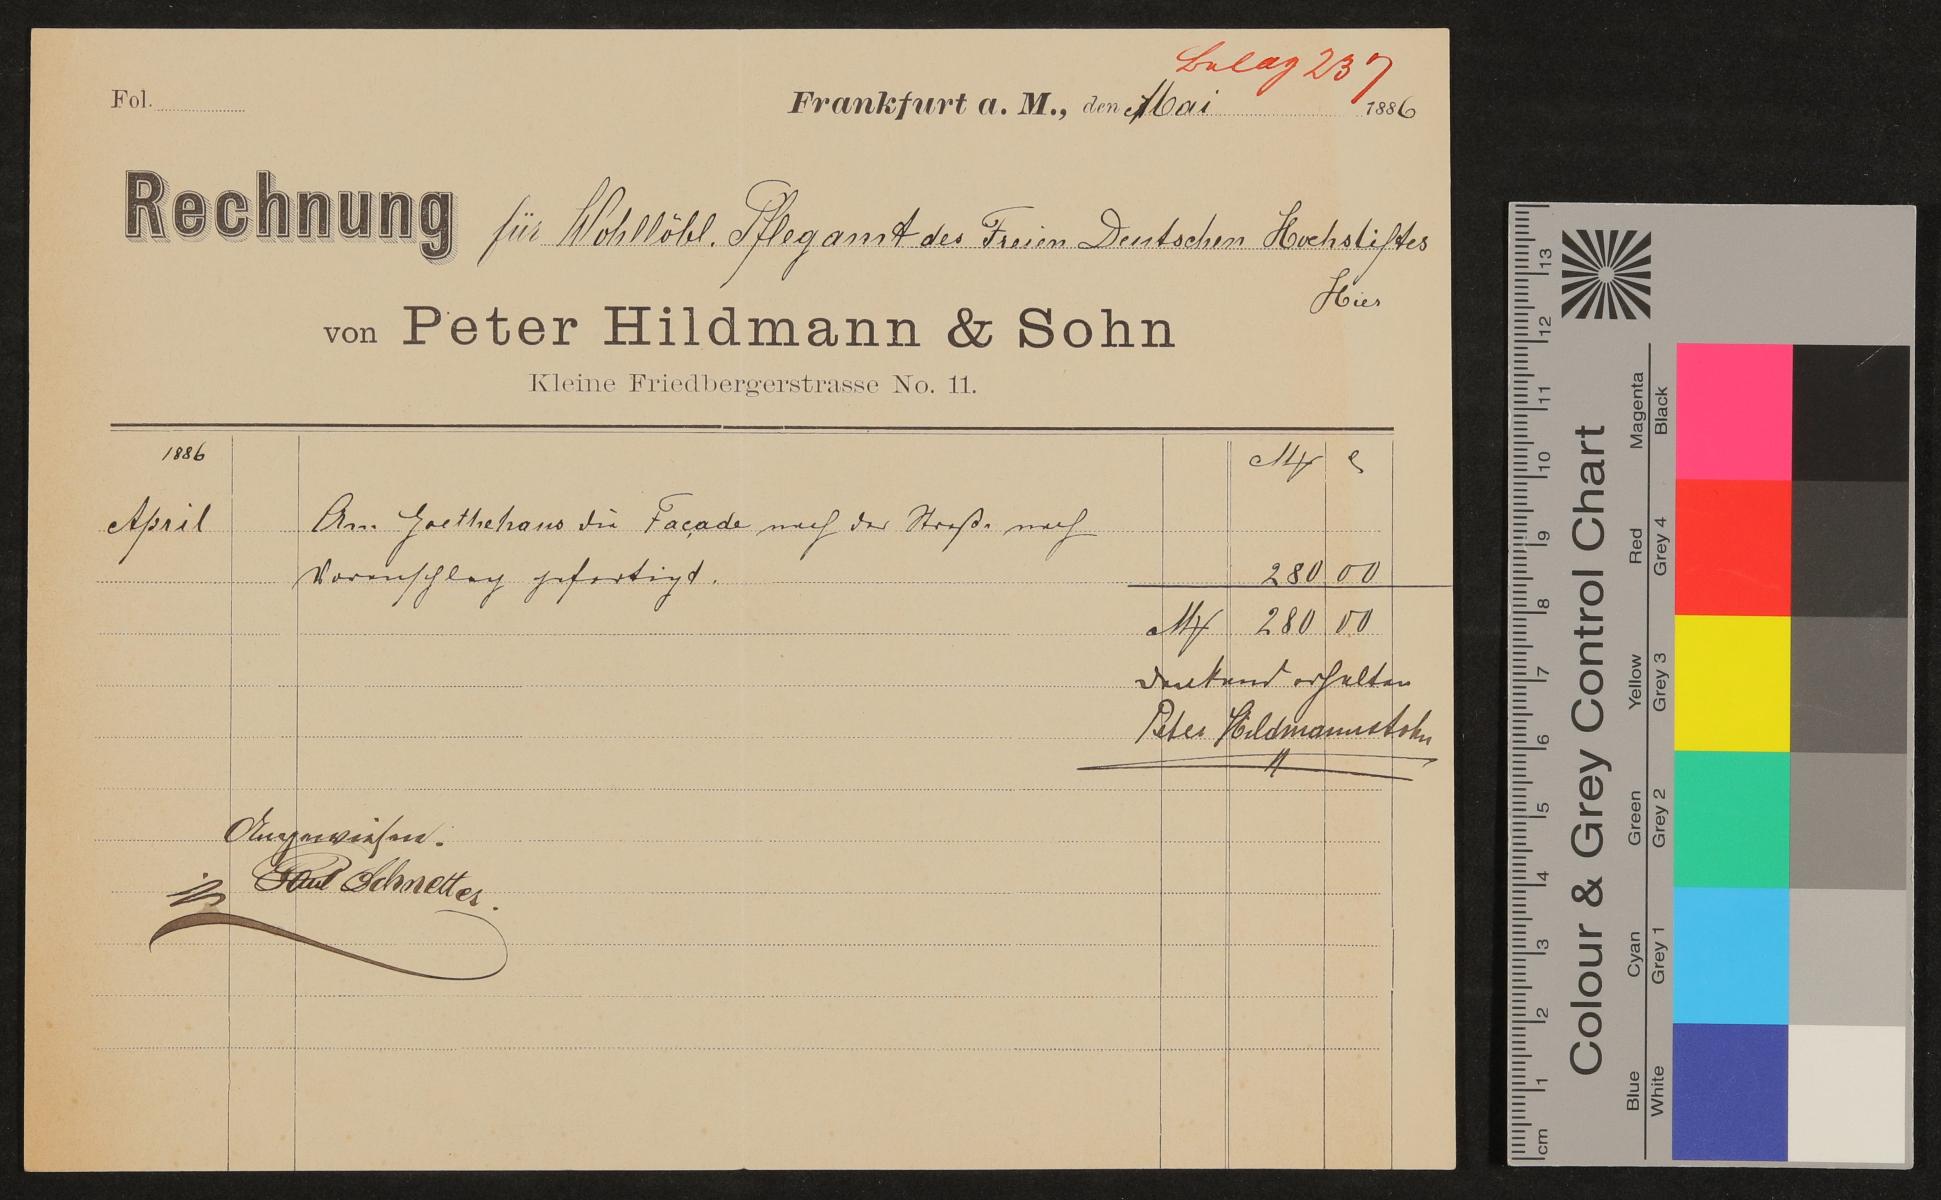 Belag 237
Fol.
Frankfurt a. M., den Mai 1886
Rechnung für Wohllöbl. Pflegamt des Freien Deutschen Hochstiftes
Hier
von Peter Hildmann & Sohn
Kleine Friedbergerstrasse No. 11.
1886
April Am Goethehaus die Façade nach der Straße nach
Voranschlag gefertigt. 280 00
280 00
dankend erhalten
Peter Hildmann & Sohn
Angewiesen.
Paul Schnetter.
Colour & Grey Control Chart
Blue Cyan Green Yellow Red Magenta
White Grey 1 Grey 2 Grey 3 Grey 4 Black
cm 1 2 3 4 5 6 7 8 9 10 11 12 13